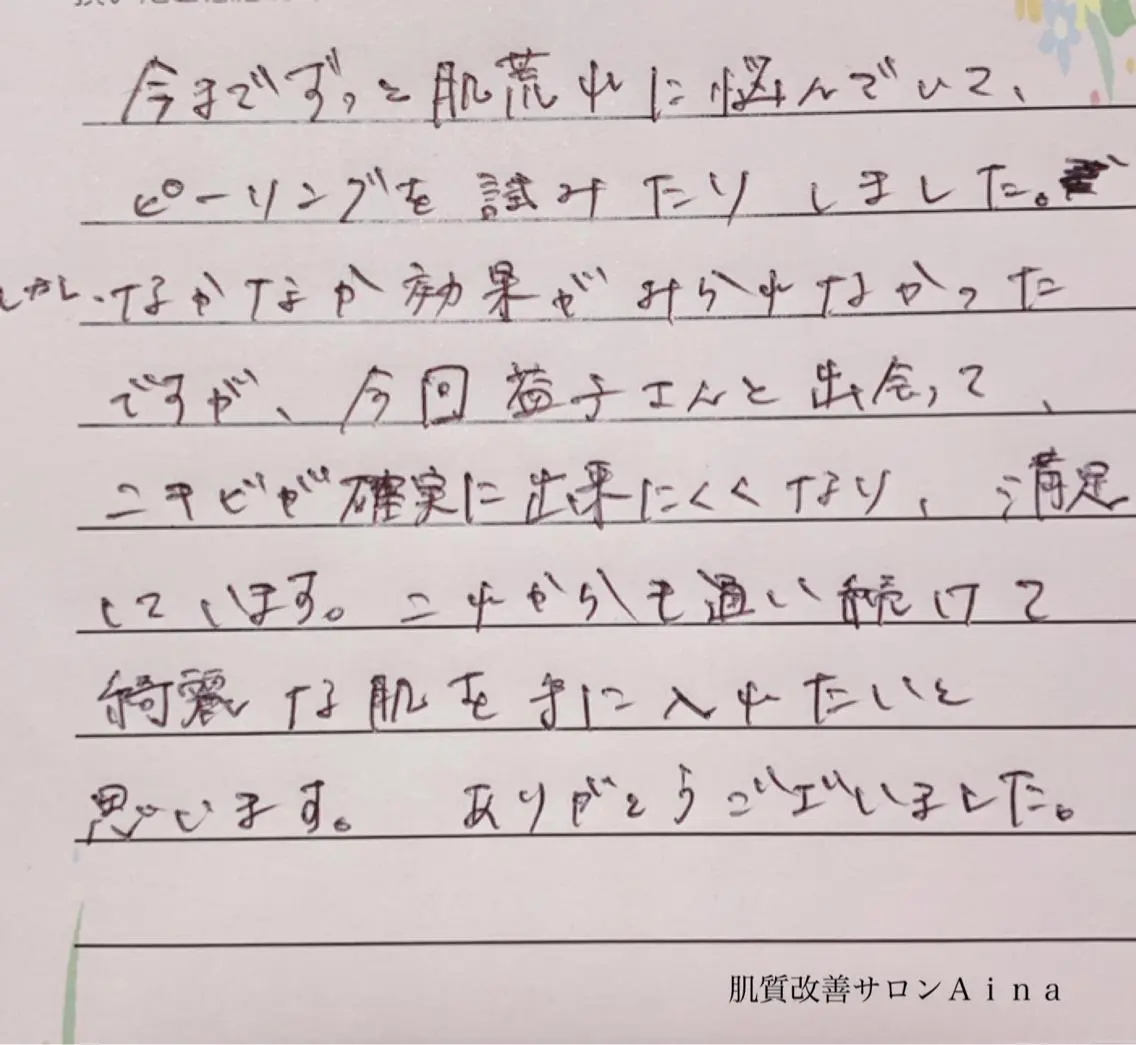 今までずっと肌荒れに悩んでいて、
ピーリングを試みたりしました。
しかし、なかなか効果がみられなかった
ですが、今回益子さんと出会って、
ニキビが確実に出来にくくなり、満足
しています。これからも通い続けて
綺麗な肌を手に入れたいと
思います。 ありがとうございました。
肌質改善サロンＡｉｎａ